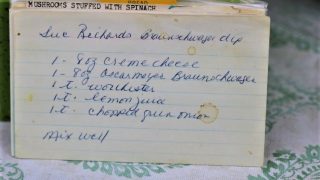 MUSHROOMS STUFFED WITH SPINACH
Sue Richards Braunschwager dip
1 - 8oz creme cheese
1 - 8oz Oscar Mayer Braunschwager
1 t. worchister
1 t. lemon juice
1 t. chopped green onion
Mix well